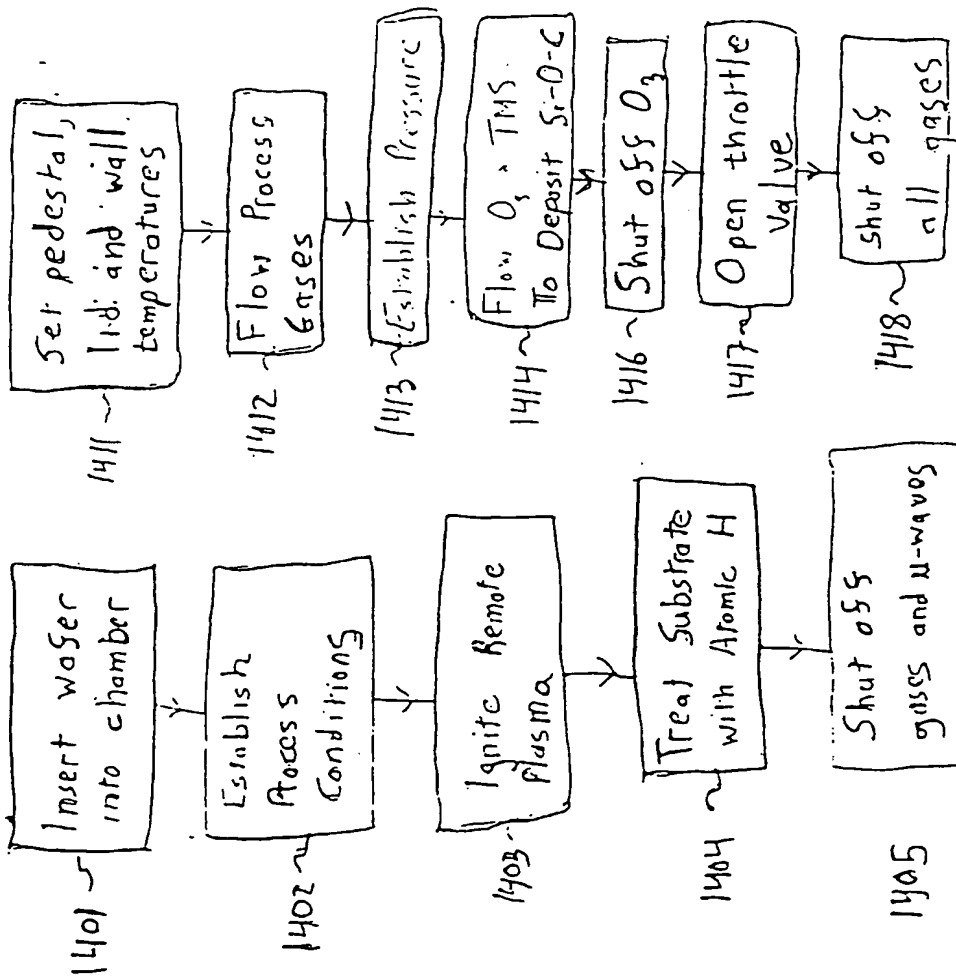 1401
Insert wafer
into chamber
1402
Establish
Process
Conditions
1403
Ignite Remote
Plasma
1404
Treat Substrate
with Atomic H
1405
Shut off
gases and µ-waves
1411
Set pedestal,
lid and wall
temperatures
1412
Flow Process
Gases
1413
Establish Pressure
1414
Flow O3 + TMS
To Deposit Si-O-C
1416
Shut off O3
1417
Open throttle
Valve
1418
Shut off
all gases